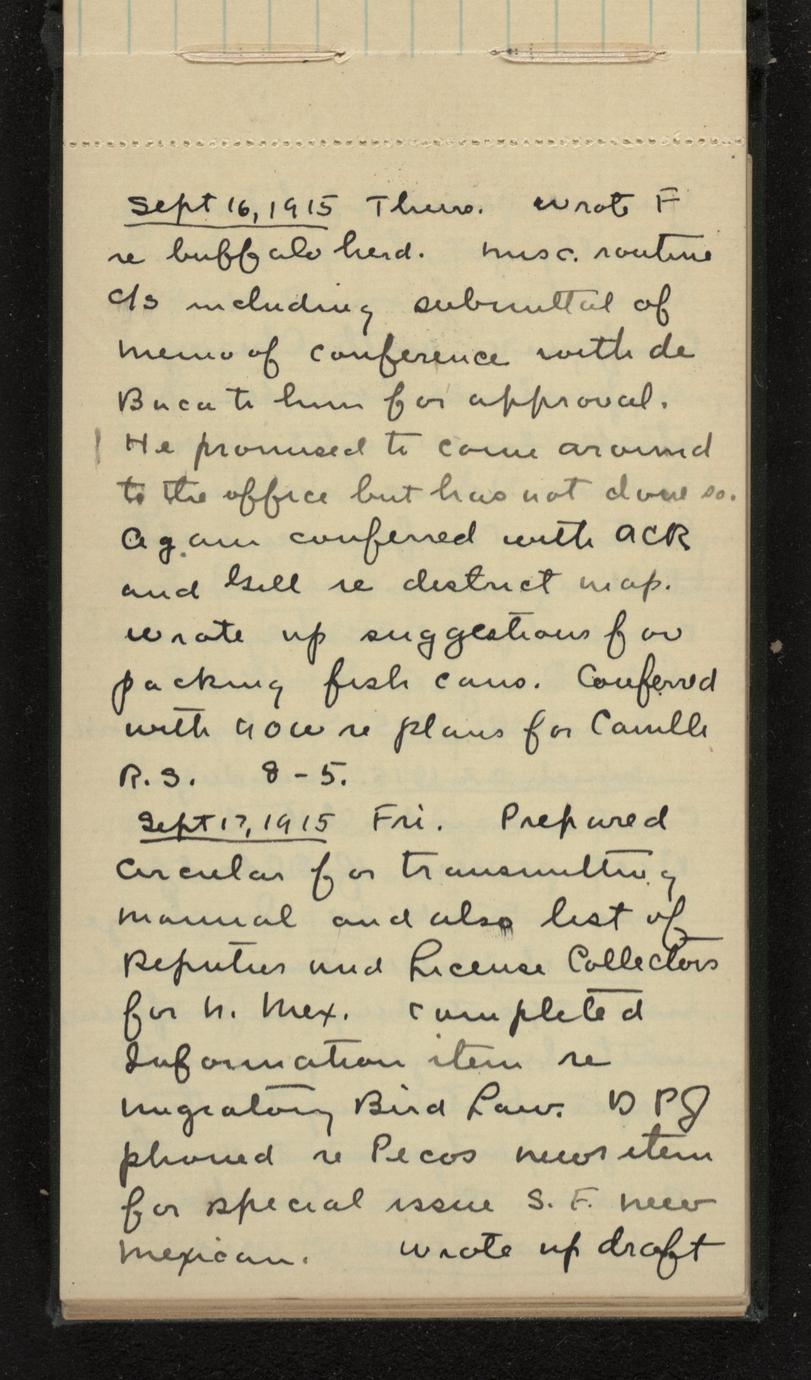 Sept 16, 1915 Thurs. Wrote F
re buffalo herd. Misc. routine
c/s including submittal of
memo of conference with de
Baca to him for approval.
He promised to come around
to the office but has not done so.
Again conferred with ACR
and Gill re district map.
Wrote up suggestions for
packing fish cans. Conferred
with AOW re plans for Canille
R.S. 8-5.
Sept 17, 1915 Fri. Prepared
circular for transmitting
manual and also list of
Deputies and License Collectors
for N. Mex. Completed
Information item re
Migratory Bird Law. D P J
phoned re Pecos news item
for special issue S. F. New
Mexican. Wrote up draft